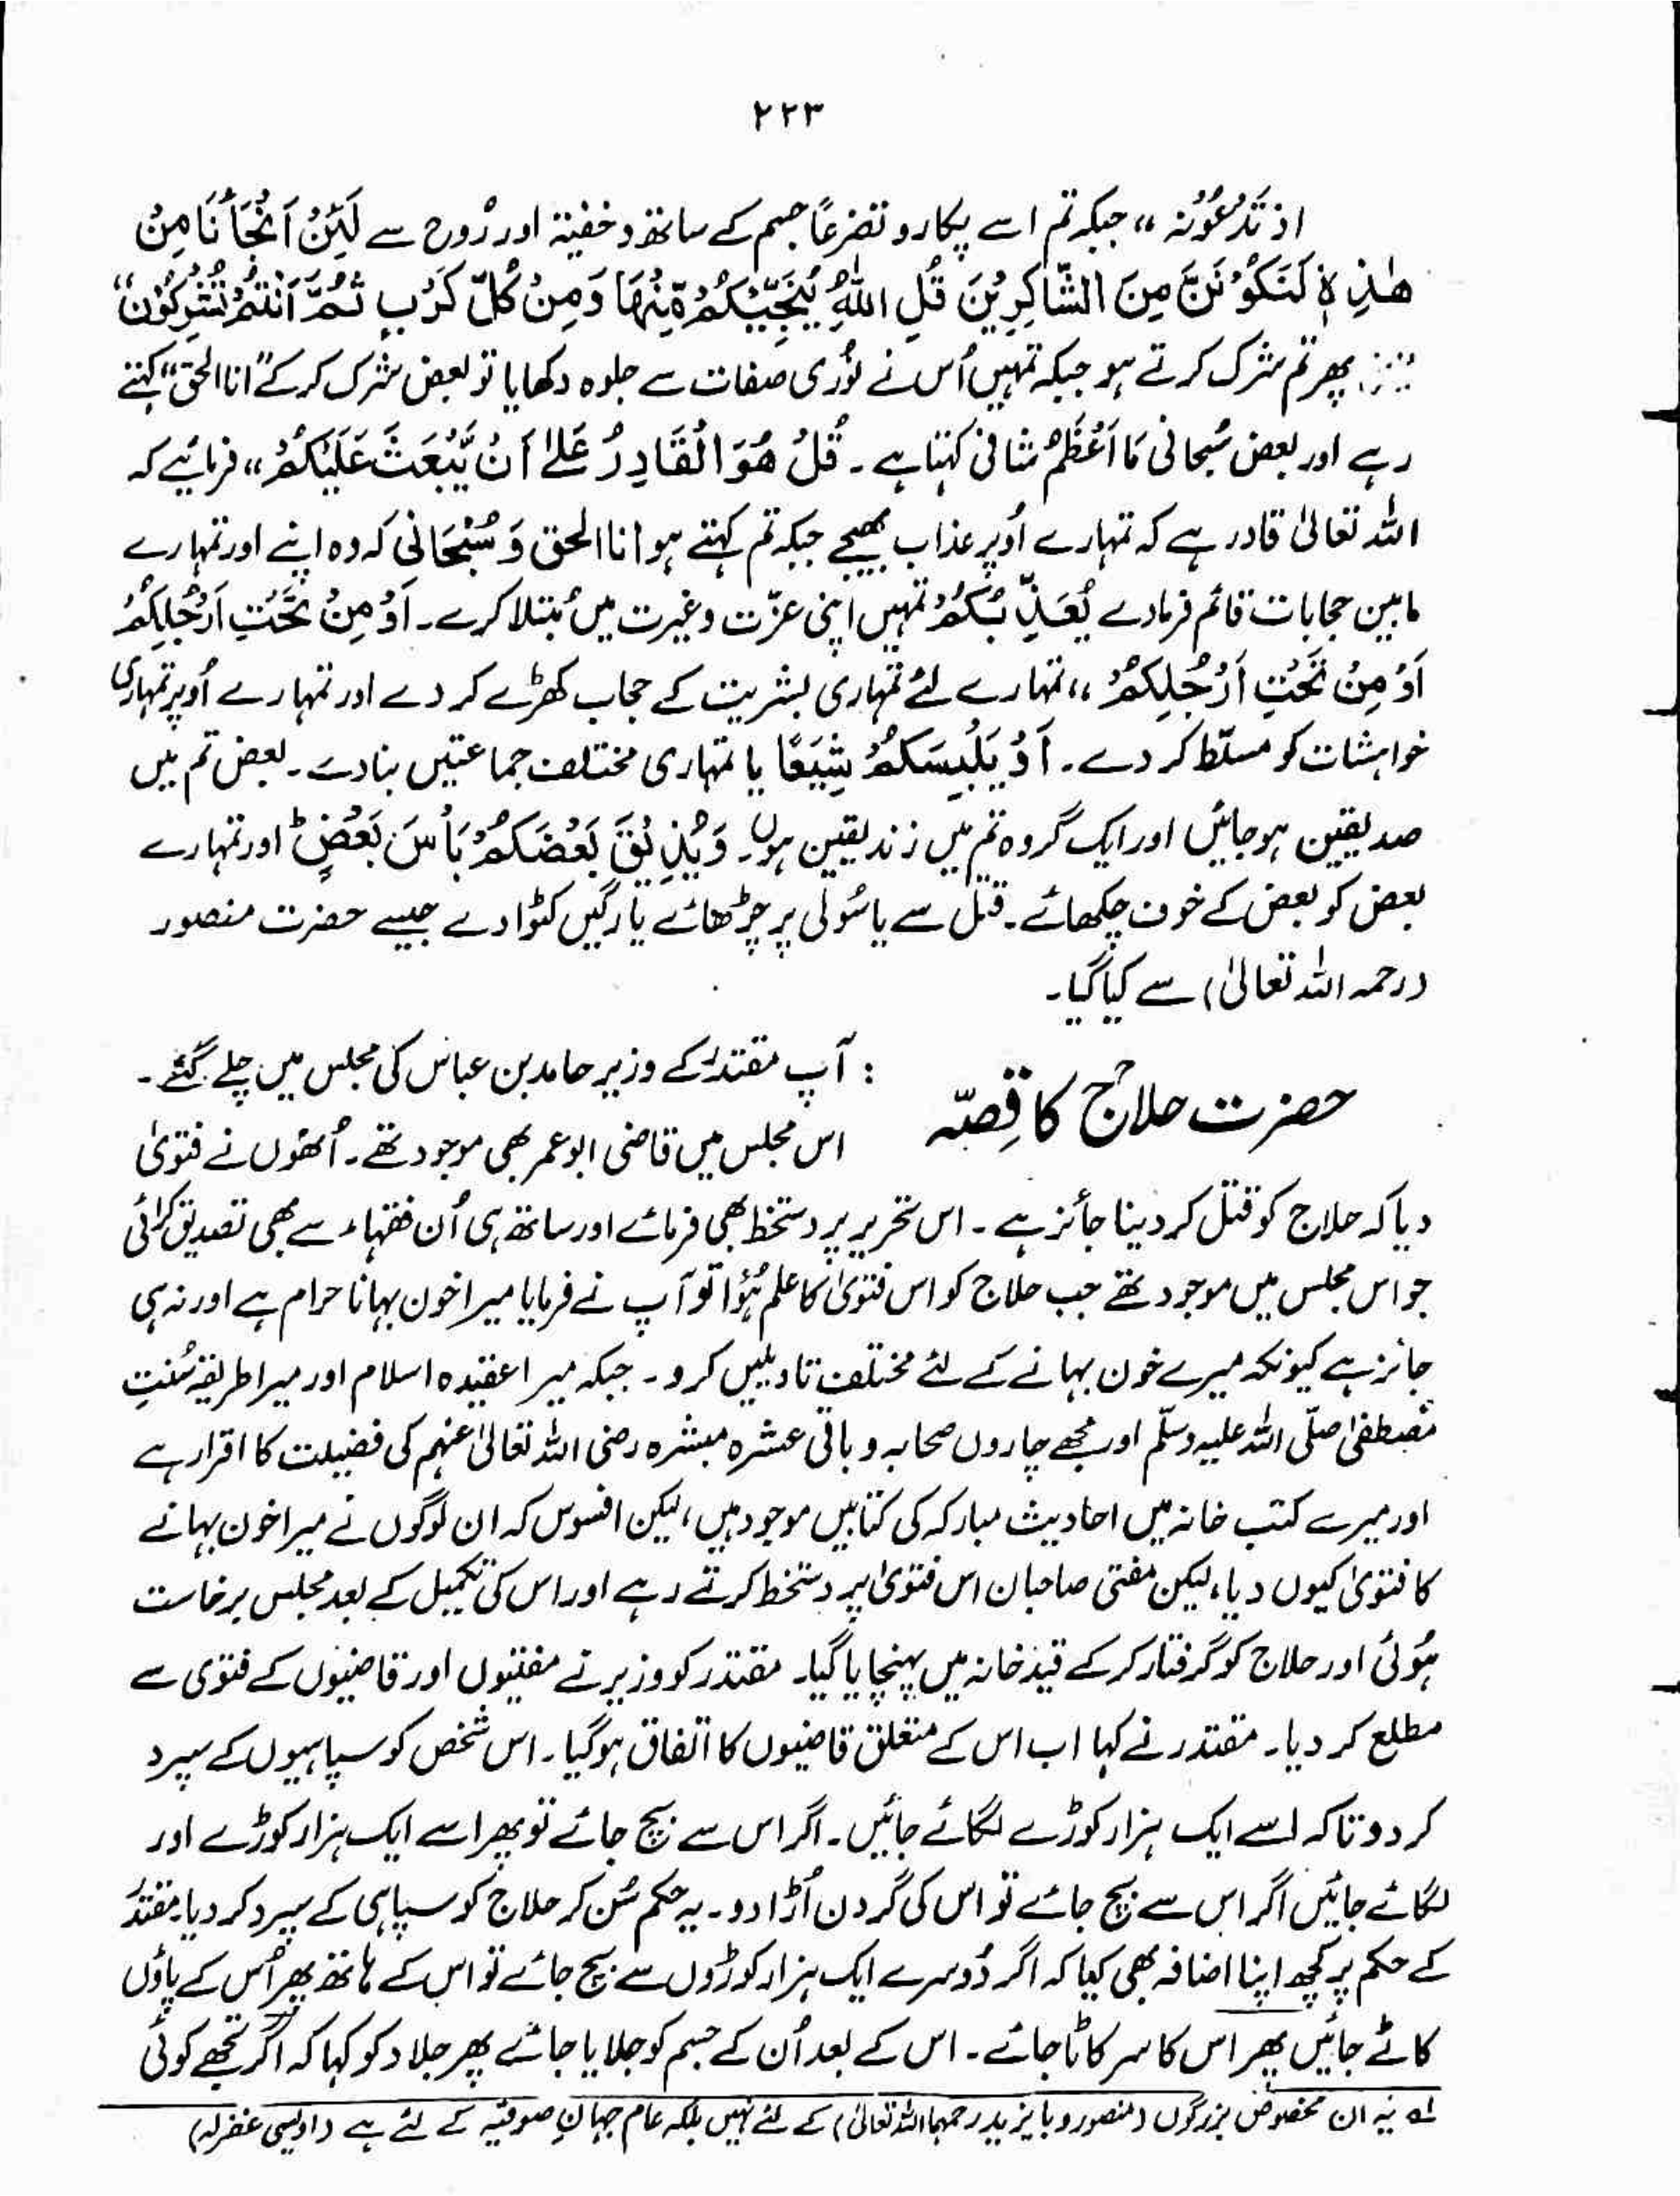 ۲۲۳
اذ تَدْعُوْنہ ،، جبکہ تم اسے پکارو تضرعًا جسم کے ساتھ و خفیۃ اور رُوح سے لَئِنْ اَنْجَانَا مِنْ
ھٰذِہٖ لَنَکُوْنَنَّ مِنَ الشّٰاکِرِیْنَ قُلِ اللّٰہُ یُنَجِّیْکُمْ مِّنْہَا وَمِنْ کُلِّ کَرْبٍ ثُمَّ اَنْتُمْ تُشْرِکُوْنَ،،
پھر تم شرک کرتے ہو جبکہ تمہیں اُس نے نوُری صفات سے جلوہ دکھایا تو بعض شرک کرکے "انا الحق" کہتے
رہے اور بعض سُبحانی مَا اَعْظَمُ شانی کہتا ہے ۔ قُلْ ھُوَ الْقَادِرُ عَلےٰ اَنْ یَّبْعَثَ عَلَیْکُمْ ،، فرمائیے کہ
اللہ تعالیٰ قادر ہے کہ تمہارے اُوپر عذاب بھیجے جبکہ تم کہتے ہو انا الحق وَ سُبْحَانی کہ وہ اپنے اور تمہارے
مابین حجابات قائم فرمادے یُعَذِّبْکُمْ تمہیں اپنی عزّت و غیرت میں مُبتلا کرے ۔ اَوْ مِنْ تَحْتِ اَرْجُلِکُمْ
اَوْ مِنْ تَحْتِ اَرْجُلِکُمْ ،، تمہارے لئے تمہاری بشریت کے حجاب کھڑے کر دے اور تمہارے اُوپر تمہاری
خواہشات کو مسلّط کر دے ۔ اَوْ یَلْبِسَکُمْ شِیَعًا یا تمہاری مختلف جماعتیں بنادے ۔ بعض تم میں
صدیقین ہو جائیں اور ایک گروہ تم میں زندیقین ہوں۔ وَیُذِیْقَ بَعْضَکُمْ بَاْسَ بَعْضٍ ؕ اور تمہارے
بعض کو بعض کے خوف چکھائے ۔ قتل سے یا سُولی پر چڑھائے یا رگیں کٹوا دے جیسے حضرت منصور
(رحمہ اللہ تعالیٰ) سے کیا گیا ۔
حضرت حلاجؒ کا قِصّہ : آپ مقتدر کے وزیر حامد بن عباس کی مجلس میں چلے گئے ۔
اس مجلس میں قاضی ابو عمر بھی موجود تھے ۔ اُنھوں نے فتویٰ
دیا کہ حلاج کو قتل کر دینا جائز ہے ۔ اس تحریر پر دستخط بھی فرمائے اور ساتھ ہی اُن فقہاء سے بھی تصدیق کرائی
جو اس مجلس میں موجود تھے جب حلاج کو اس فتویٰ کا علم ہُوا تو آپ نے فرمایا میرا خون بہانا حرام ہے اور نہ ہی
جائز ہے کیونکہ میرے خون بہانے کے لئے مختلف تاویلیں کرو ۔ جبکہ میرا عقیدہ اسلام اور میرا طریقہ سُنتِ
مُصطفیٰ صلّی اللہ علیہ وسلّم اور مجھے چاروں صحابہ و باقی عشرہ مبشرہ رضی اللہ تعالیٰ عنہم کی فضیلت کا اقرار ہے
اور میرے کتب خانہ میں احادیث مبارکہ کی کتابیں موجود ہیں ، لیکن افسوس کہ ان لوگوں نے میرا خون بہانے
کا فتویٰ کیوں دیا ، لیکن مفتی صاحبان اس فتویٰ پر دستخط کرتے رہے اور اس کی تکمیل کے بعد مجلس برخاست
ہُوئی اور حلاج کو گرفتار کر کے قیدخانہ میں پہنچایا گیا ۔ مقتدر کو وزیر نے مفتیوں اور قاضیوں کے فتوی سے
مطلع کر دیا ۔ مقتدر نے کہا اب اس کے متعلق قاضیوں کا اتفاق ہو گیا ۔ اس شخص کو سپاہیوں کے سپرد
کر دو تاکہ اسے ایک ہزار کوڑے لگائے جائیں ۔ اگر اس سے بچ جائے تو پھر اسے ایک ہزار کوڑے اور
لگائے جائیں اگر اس سے بچ جائے تو اس کی گردن اُڑا دو ۔ یہ حکم سُن کر حلاج کو سپاہی کے سپرد کر دیا مقتدر
کے حکم پر کچھ اپنا اضافہ بھی کیا کہ اگر دُوسرے ایک ہزار کوڑوں سے بچ جائے تو اس کے ہاتھ پھر اُس کے پاؤں
کاٹے جائیں پھر اس کا سر کاٹا جائے ۔ اس کے بعد اُن کے جسم کو جلایا جائے پھر جلاد کو کہا کہ اگر تجھے کوئی
لہ یہ ان مخصوص بزرگوں (منصور و بایزید رحمہما اللہ تعالیٰ) کے لئے نہیں بلکہ عام جہان صوفیہ کے لئے ہے (اویسی غفرلہ)